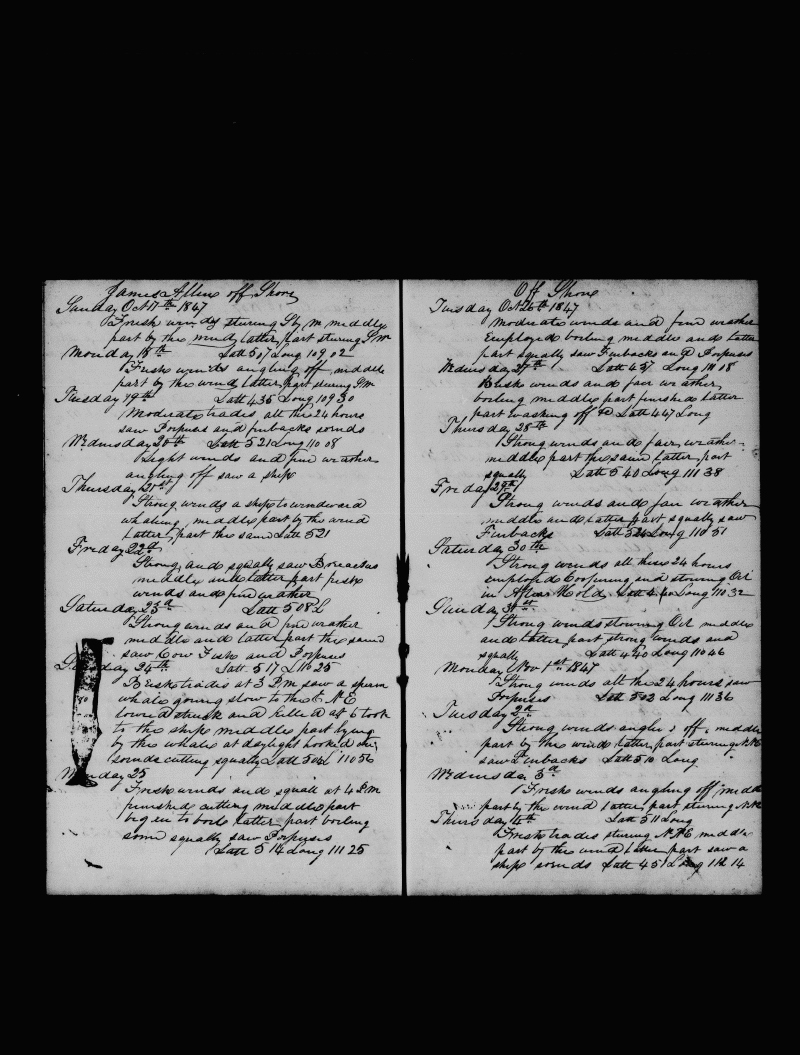 James Allen off Shore
Sunday Oct 17th 1847
Fresk winds sturing Sly m middle
part by the wind latter part sturing
Monday 18th Latt 5 07 Long 109 02
Fresk winds angling off middle
part by the wind latter part sturing
Tuesday 19th Latt 4 35 Long 109 30
Moderate trades all the 24 hours
saw Porpuses and finbacks sounds
Wednesday 20th Latt 5 21 Long 110 08
Light winds and fine weather
angling off saw a ship
Thursday 21st
Strong winds a ship to windward
whaling middle part by the wind
latter part the same Latt 5 21
Friday 22d
Strong and squally saw
middle and latter part fresk
winds and fine weather
Saturday 23d Latt 5 08 L
Strong winds and fine weather
middle and latter part the same
saw Cow Fish and Porpuses
day 24th Latt 5 17 L 110 25
Brisk trades at 3 P m saw a sperm
whale going slow to the E N E
lowered struck and killed at 6 took
to the ship middle part lying
by the whale at daylight hooked on
sounds cutting squally Latt 5 04 L 110 56
Monday 25
Fresk winds and squall at 4 P m
finished cutting middle part
begun to boil latter part boiling
some squally saw Porpuses
Latt 5 14 Long 111 25
Off Shore
Tuesday Oct 26th 1847
Moderate winds and fine weather
Employed boiling middle and latter
part squally saw Finbacks and Porpuses
Wednesday 27th Latt 4 37 Long 111 18
Brisk winds and fair weather
boiling middle part finished latter
part washing off Latt 4 47 Long
Thursday 28th
Strong winds and fair weather
middle part the same latter part
squally Latt 5 40 Long 111 38
Friday 29th
Strong winds and fair weather
middle and latter part squally saw
Finbacks Latt 5 24 Long 110 51
Saturday 30th
Strong winds all these 24 hours
employed Coopering and stowing Oil
in After Hold Latt 4 40 Long 110 32
Sunday 31st
Strong winds stowing Oil middle
and latter part strong winds and
squally Latt 4 40 Long 110 46
Monday Nov 1st 1847
Strong winds all the 24 hours saw
Porpuses Latt 5 03 Long 111 36
Tuesday 2d
Strong winds angling off middle
part by the wind latter part sturing
saw Finbacks Latt 5 10 Long
Wednesda 3d
Fresk winds angling off midd
part by the wind latter part sturing
Thursday 4th Latt 5 11 Long
Fresk trades sturing N N E middle
part by the wind latter part saw a
ship sounds Latt 4 51 Long 112 14